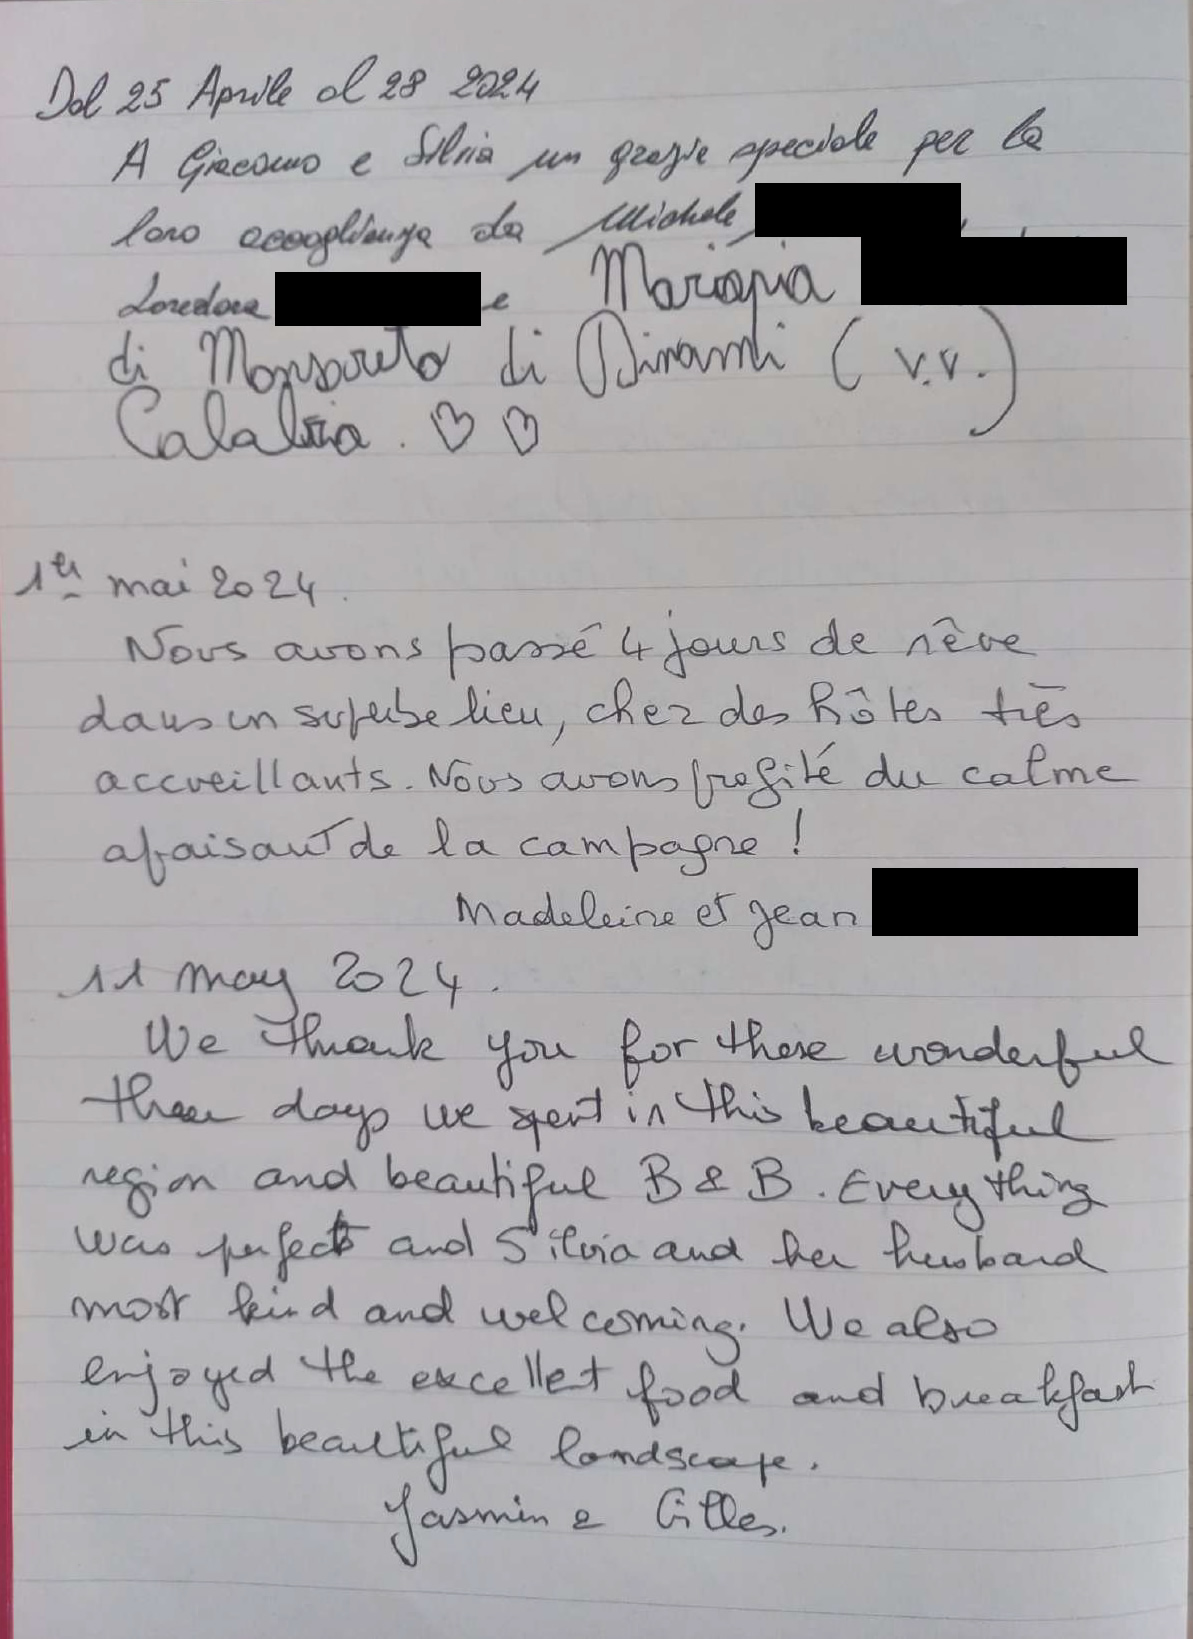 Dal 25 Aprile al 28 2024
A Giacomo e Silvia un grazie speciale per la
loro accoglienza da Michele
Loredana e Mariapia
di Monsoreto di Dinami (v.v.)
Calabria. ♡ ♡
1er mai 2024.
Nous avons passé 4 jours de rêve
dans un superbe lieu, chez des hôtes très
accueillants. Nous avons profité du calme
apaisant de la campagne !
Madeleine et Jean
11 may 2024.
We thank you for these wonderful
three days we spent in this beautiful
region and beautiful B & B. Everything
was perfect and Silvia and her husband
most kind and welcoming. We also
enjoyed the excellent food and breakfast
in this beautiful landscape.
Jasmin e Gilles.